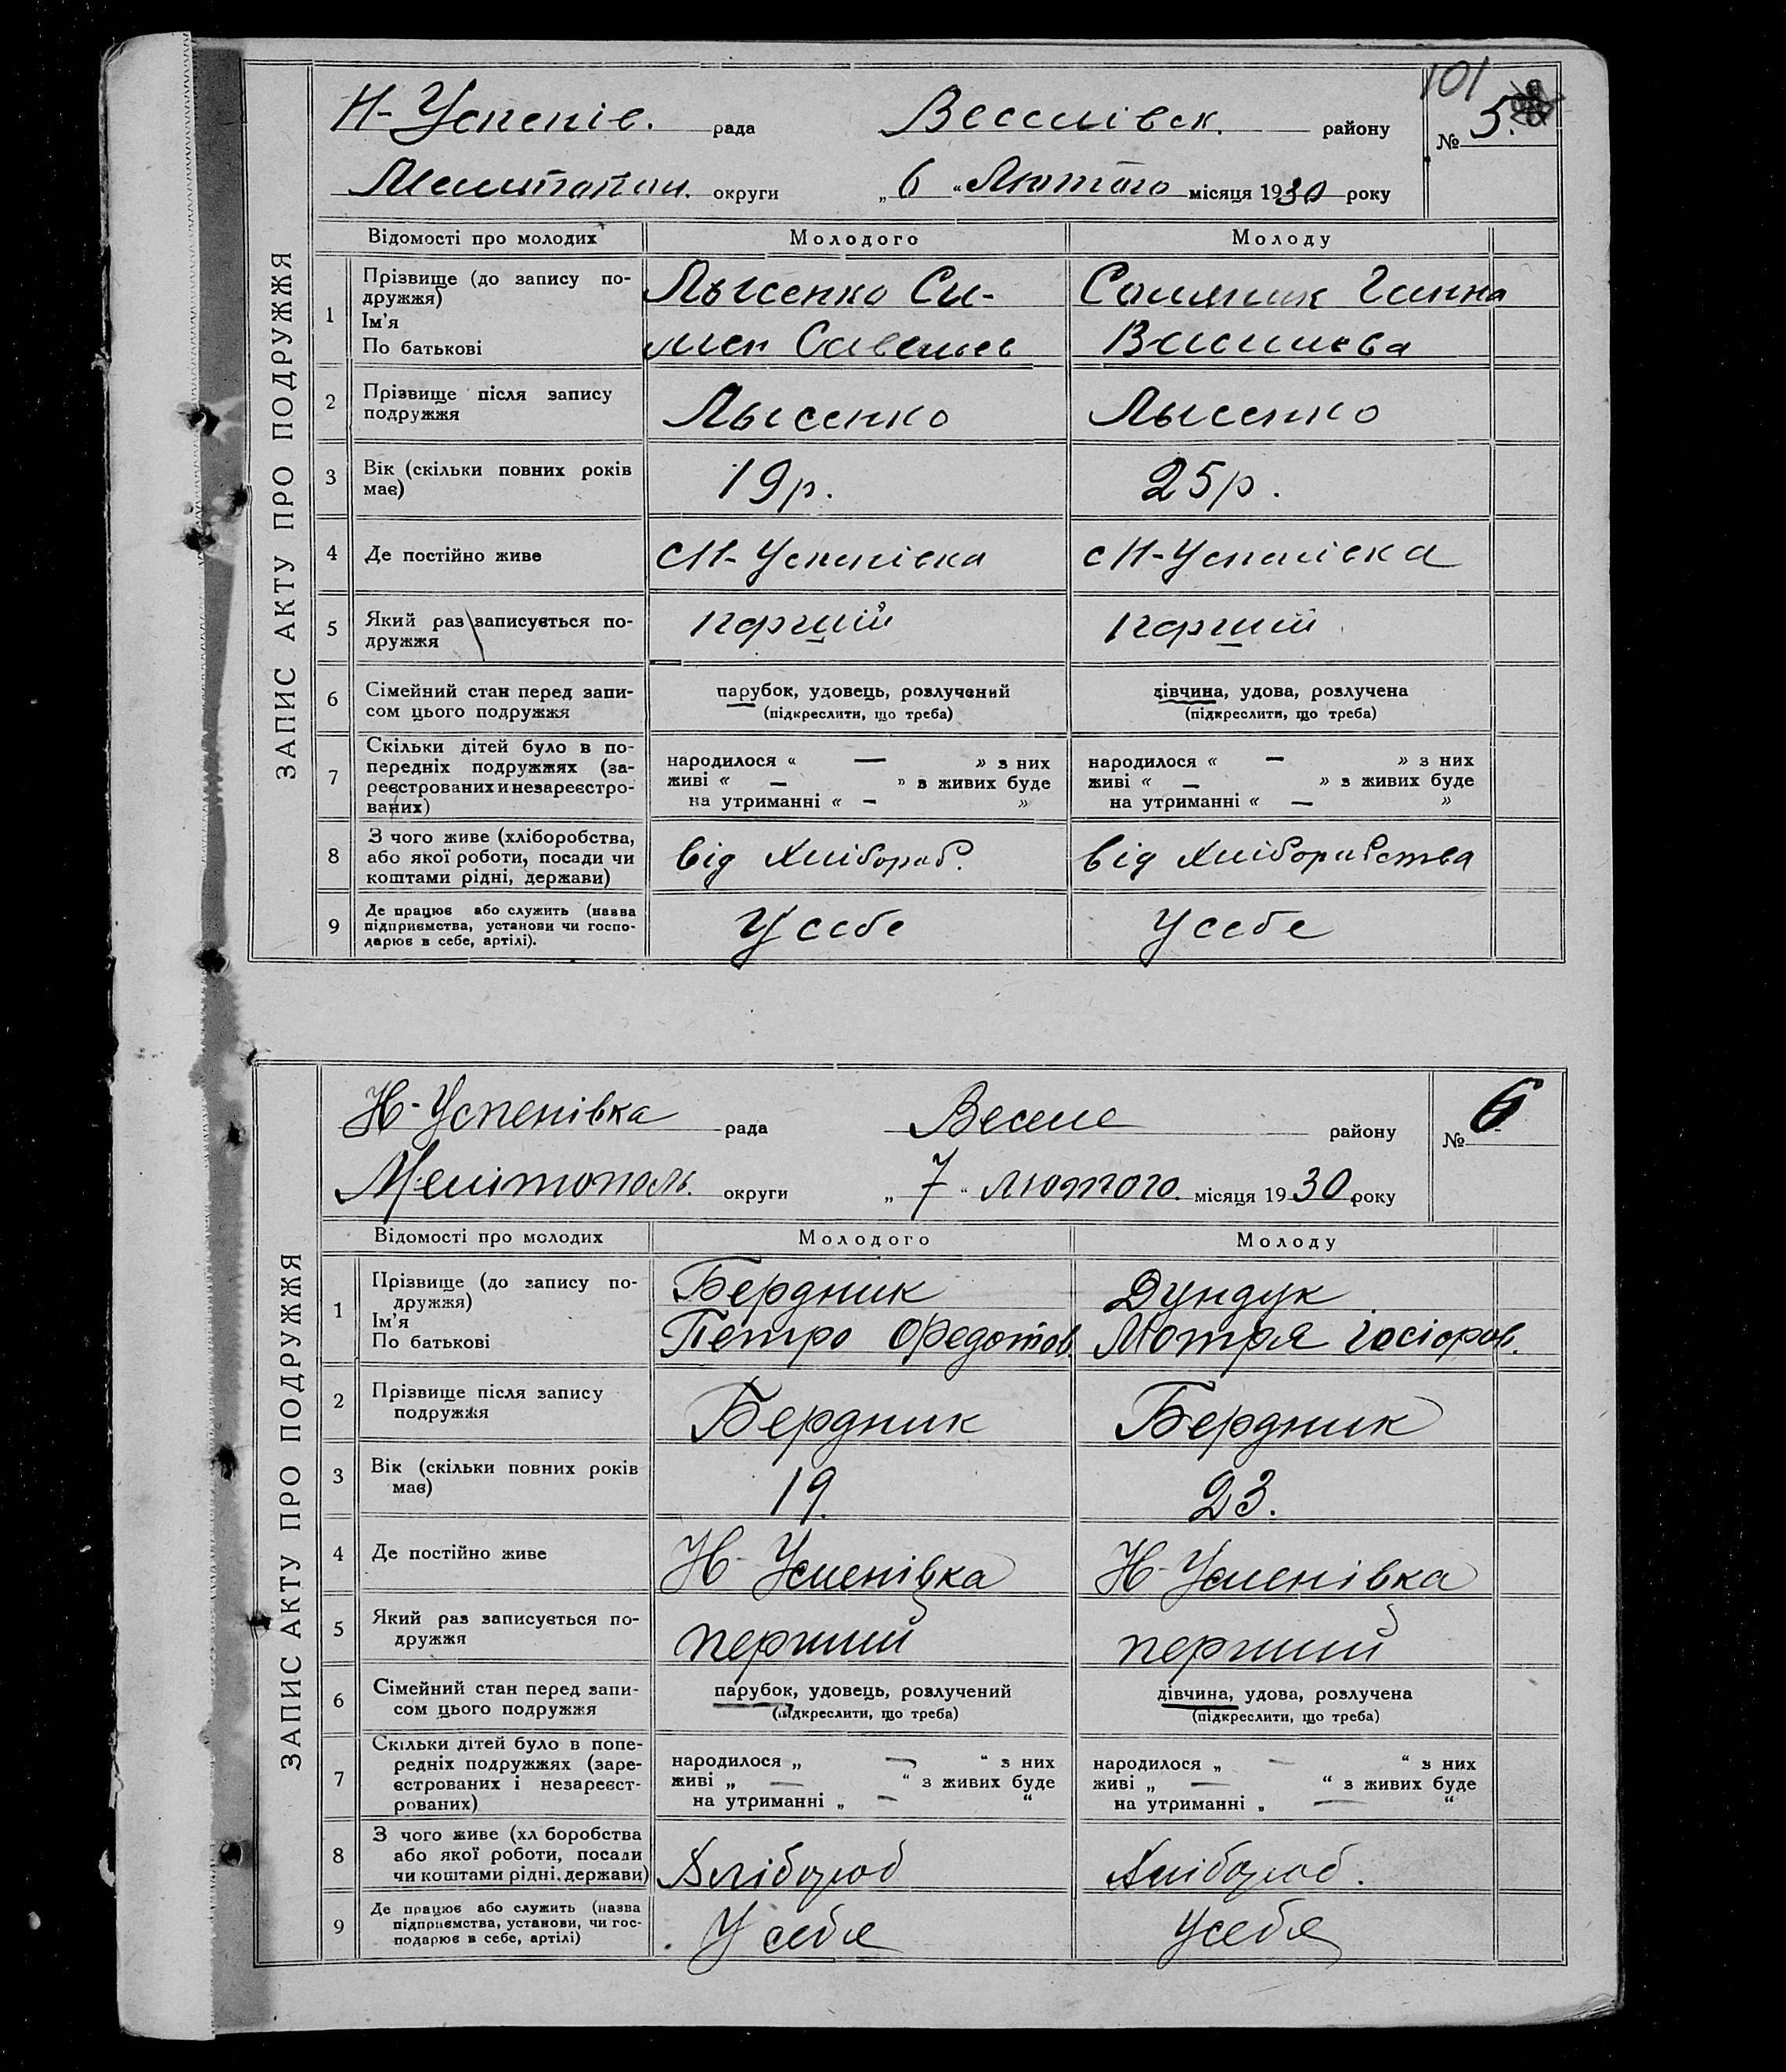 101
Н-Успенів. рада Веселівск. району № 5.
Мелитопол. округи „ 6 “ Лютого місяця 1930 року
ЗАПИС АКТУ ПРО ПОДРУЖЖЯ
Відомості про молодих Молодого Молоду
1 Прізвище (до запису по-
дружжя)
Ім’я
По батькові
Лысенко Си-
мен Савельев
Ганна
Василева
2 Прізвище після запису
подружжя
Лысенко Лысенко
3 Вік (скільки повних років
має)
19р. 25р.
4 Де постійно живе с Н-Успенівка с Н-Успенівка
5 Який раз записується по-
дружжя
перший перший
6 Сімейний стан перед запи-
сом цього подружжя
парубок, удовець, розлучений
(підкреслити, що треба)
дівчина, удова, розлучена
(підкреслити, що треба)
7 Скільки дітей було в по-
передніх подружжях (за-
реєстрованих и незареєстро-
ваних)
народилося « — » з них
живі « — » з живих буде
на утриманні « — »
народилося « — » з них
живі « — » з живих буде
на утриманні « — »
8 З чого живе (хліборобства,
або якої роботи, посади чи
коштами рідні, держави)
від Хлібороб. від Хліборобства
9 Де працює або служить (назва
підприємства, установи чи госпо-
дарює в себе, артілі).
У себе У себе
Н-Успенівка рада Веселе району № 6
Мелітополь. округи „ 7 “ лютого місяця 1930 року
ЗАПИС АКТУ ПРО ПОДРУЖЖЯ
Відомості про молодих Молодого Молоду
1 Прізвище (до запису по-
дружжя)
Ім’я
По батькові
Бердник
Петро Федотов.
Дундук
Мотря
2 Прізвище після запису
подружжя
Бердник Бердник
3 Вік (скільки повних років
має)
19. 23.
4 Де постійно живе Н-Успенівка Н-Успенівка
5 Який раз записується по-
дружжя
перший перший
6 Сімейний стан перед запи-
сом цього подружжя
парубок, удовець, розлучений
(підкреслити, що треба)
дівчина, удова, розлучена
(підкреслити, що треба)
7 Скільки дітей було в попе-
редніх подружжях (заре-
єстрованих і незареєст-
рованих)
народилося „ — “ з них
живі „ — “ з живих буде
на утриманні „ — “
народилося „ — “ з них
живі „ — “ з живих буде
на утриманні „ — “
8 З чого живе (хл боробства
або якої роботи, посади
чи коштами рідні, держави)
Хлібороб Хлібороб.
9 Де працює або служить (назва
підприємства, установи, чи гос-
подарює в себе, артілі)
У себя У себя